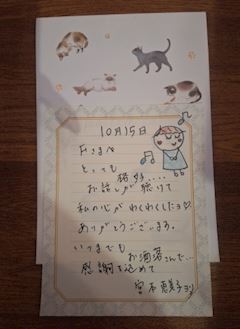 10月15日
Fさま
とっても
お話しが聴けて
私の心がわくわくしたヨ♡
ありがとうございます。
いつまでも
お洒落さんで…
感謝を込めて